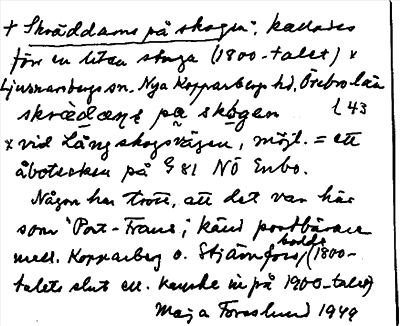 + Skräddams på skogen", kallades
förr en liten stuga (1800-talet) x
Ljusnarsbergs sn. Nya Kopparbergs hd, Örebro län
skrädæne pa skogen L 43
x vid Långskogsvägen, möjl. = ett
åbotecken på § 81 NÖ Enbo.
Någon har trott, att det var här
som "Post-Frans", känd postbärare
mell. Kopparberg o. Stjärnfors, bodde (1800-
talets slut ell. kanske in på 1900-talet)
Maja Forsslund 1949